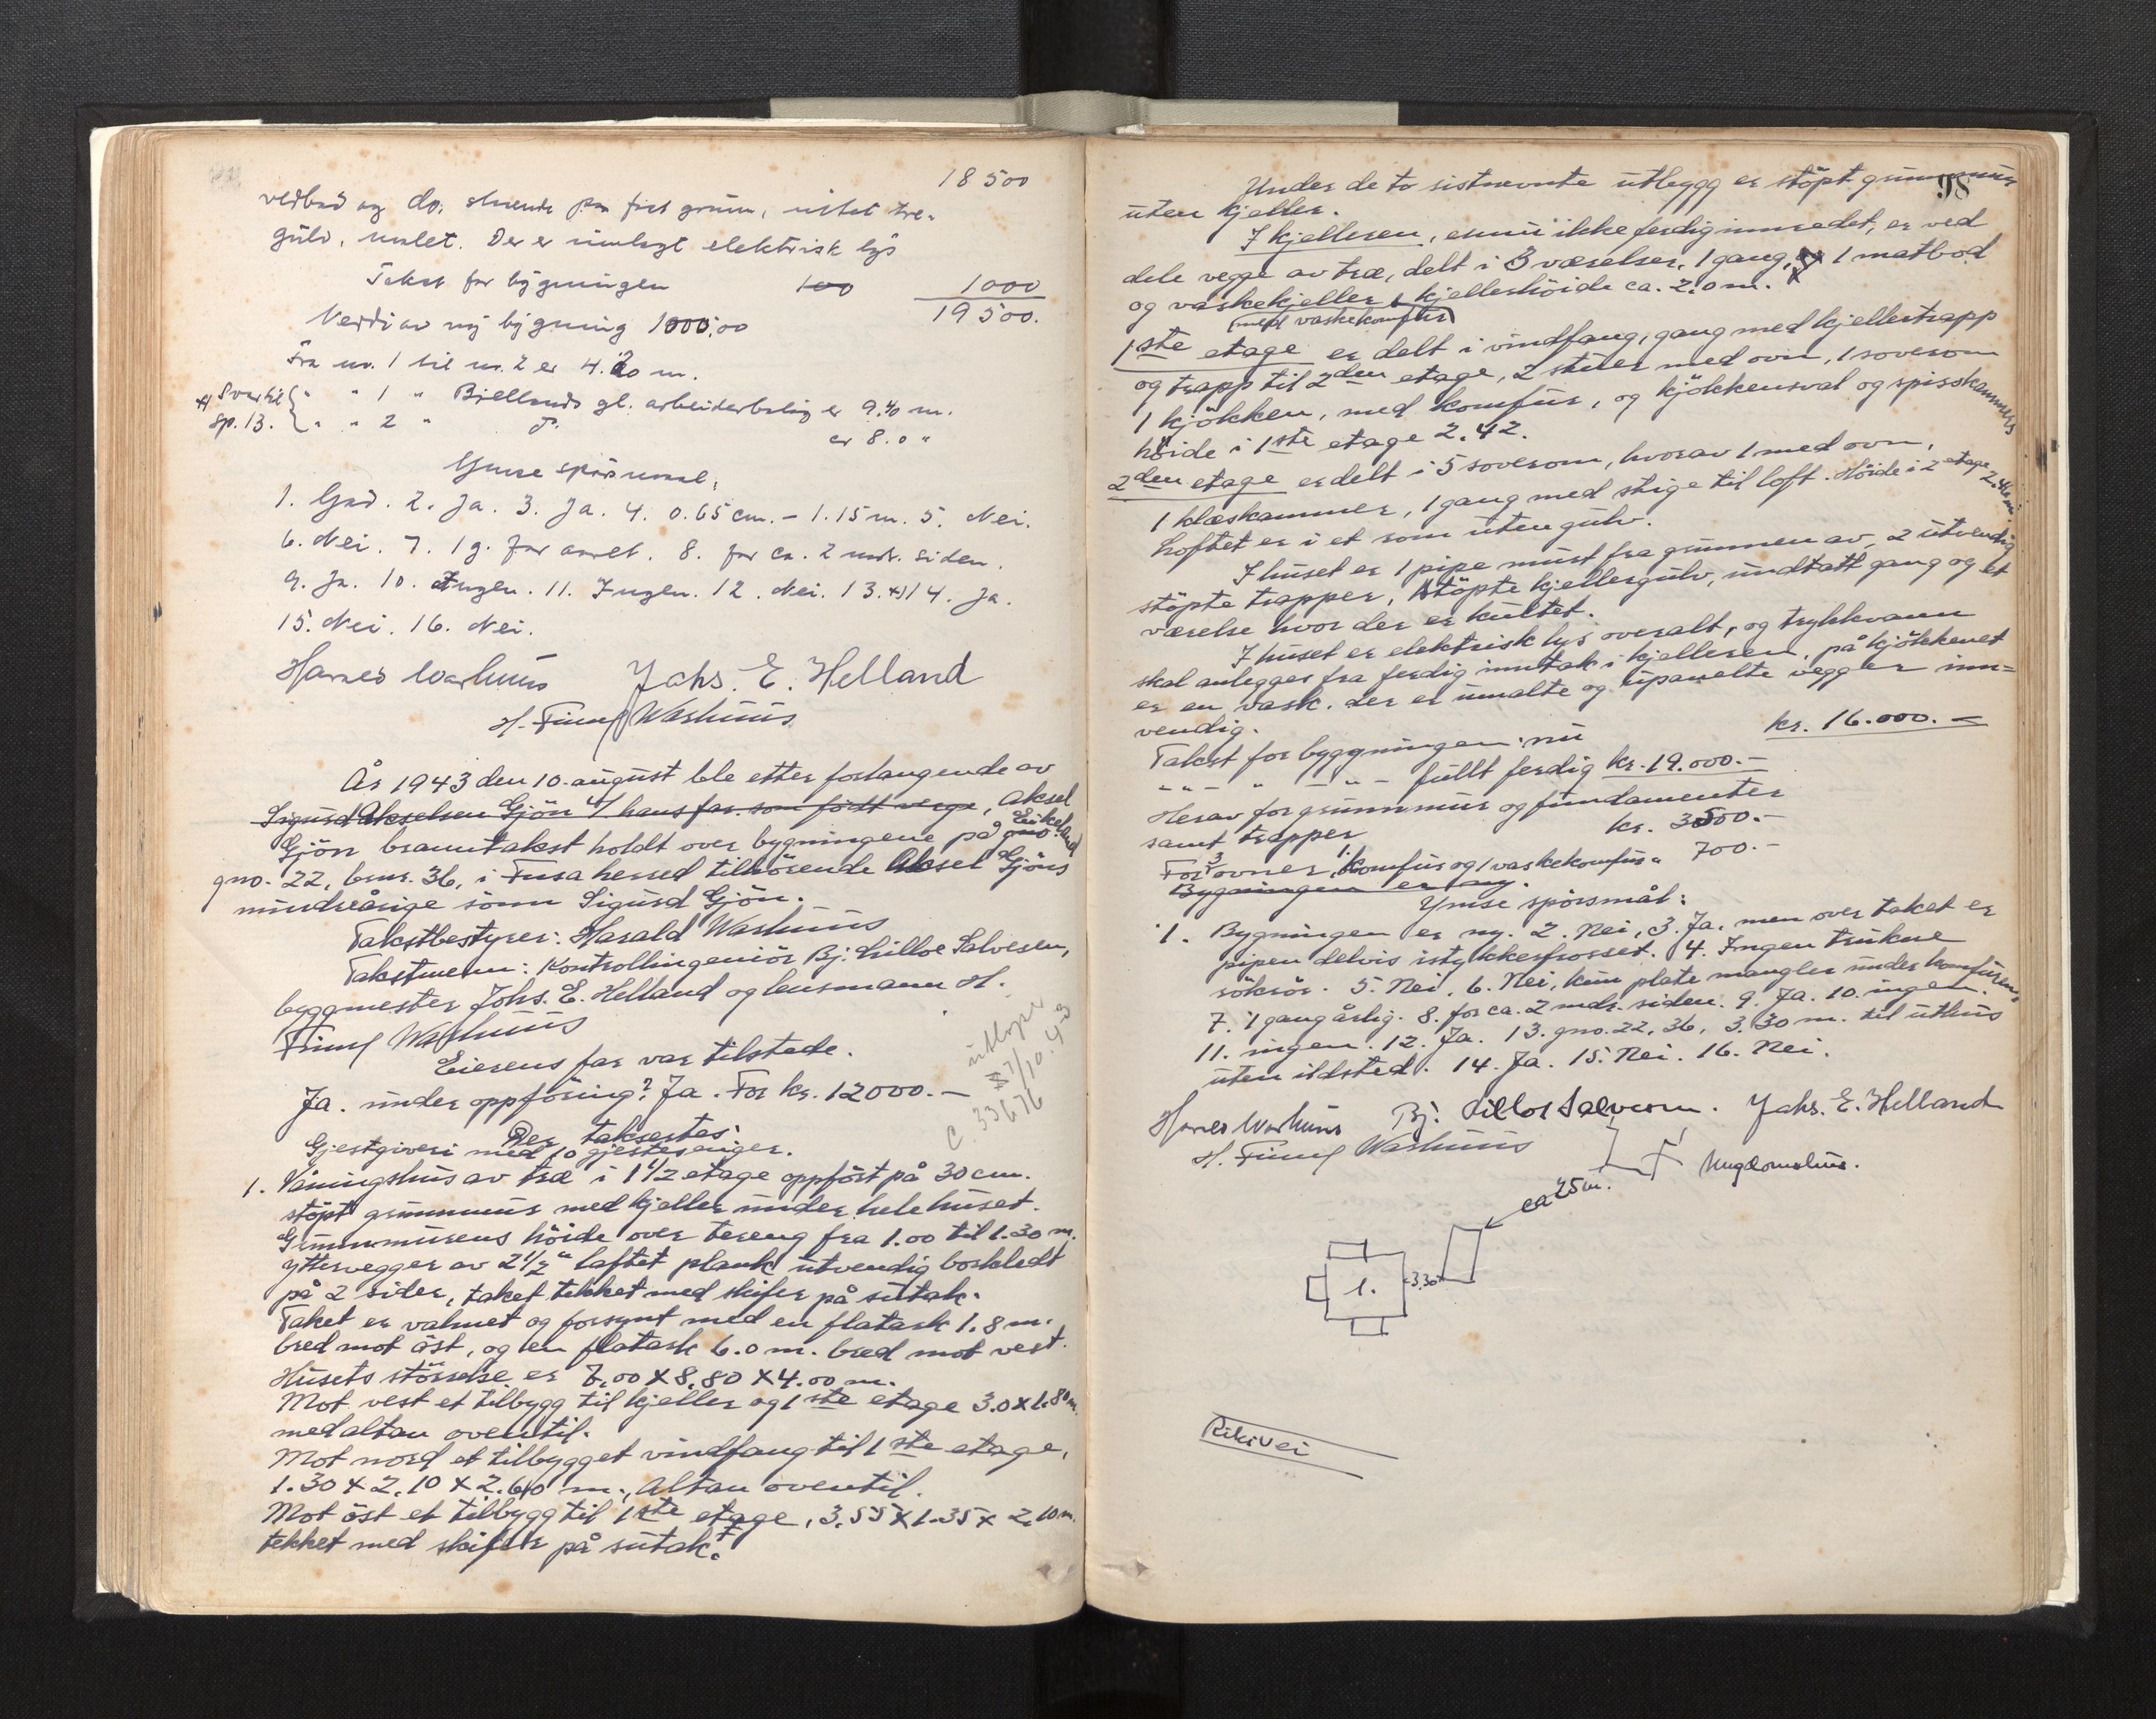 18500
vedbod og do. stående på fast grunn, uten tre-
gulv, malet. Der er innlagt elektrisk lys
Takst for bygningen 100 1000
19500.
Verdi av ny bygning 1000,00
Fra nr. 1 til nr. 2 er 4.20 m.
+) Svar til " " 1 " Bjellands gl. arbeiderbolig er 9.40 m.
sp. 13. " " 2 " er 8.0 "
Ymse spörsmål:
1. God. 2. Ja. 3. Ja. 4. 0.65 cm. - 1.15 m. 5. Nei.
6. Nei. 7. 1 g. for aaret. 8. for ca. 2 mdr. siden.
9. Ja. 10. Ingen. 11. Ingen. 12. Nei. 13. +) 14. Ja.
15. Nei. 16. Nei.
Harald Warhuus Johs. E. Helland
H. Finng Warhuus
År 1943 den 10. august ble etter forlangende av
Sigurd Akselsen Gjön v/ hans far som födt verge, Aksel
Gjön branntakst holdt over bygningene på Eikeland
gno. 22, brnr. 36, i Fusa herred tilhörende Aksel Gjöns
mindreårige sönn Sigurd Gjön.
Takstbestyrer: Harald Warhuus
Takstmenn: Kontrollingeniör Bj. Lilloe Salvesen,
byggmester Johs. E. Helland og lensmann H.
Finng Warhuus
Eierens far var tilstede.
Ja. under oppföring? Ja. For kr. 12000.-
utlöper
7/10.43
C 33676
Der takseres:
Gjestgiveri med 10 gjestesenger.
1. Våningshus av træ i 1 1/2 etage oppfört på 30 cm.
stöpt grunnmur med kjeller under hele huset.
Grunnmurens höide over tereng fra 1.00 til 1.30 m.
yttervegger av 2 1/2" laftet plank utvendig bordkledt
på 2 sider, taket tekket med skifer på sutak.
Taket er valmet og forsynt med en flatark 1.8 m.
bred mot öst, og en flatark 6.0 m. bred mot vest.
Husets störrelse er 7.00 x 8.80 x 4.00 m.
Mot vest et tilbygg til kjeller og 1ste etage 3.0 x 1.80 m.
med altan oventil.
Mot nord et tilbygget vindfang til 1ste etage,
1.30 x 2.10 x 2.60 m., Altan oventil.
Mot öst et tilbygg til 1ste etage, 3.55 x 1.35 x 2.10 m.
tekket med skifer på sutak.
98
Under de to sistnevnte utbygg er stöpt grunnmur
uten kjeller.
I kjelleren, ennu ikke ferdig innredet, er ved
dele vegge av træ, delt i 3 værelser, 1 gang, og 1 matbod
og vaskekjeller, kjellerhöide ca. 2.0 m.
(med vaskekomfur)
1ste etage er delt i vindfang, gang med kjellertrapp
og trapp til 2den etage, 2 stuer med ovn, 1 soverom
1 kjökken, med komfur, og kjökkensval og spisskammers
höide i 1ste etage 2.42.
2den etage er delt i 5 soverom, hvorav 1 med ovn,
1 klæskammer, 1 gang med stige til loft. Höide i 2 etage 2.46 m.
Loftet er i et rom uten gulv.
I huset er 1 pipe murt fra grunnen av, 2 utvendig
stöpte trapper, stöpte kjellergulv, undtatt gang og et
værelse hvor der er kultet.
I huset er elektrisk lys overalt, og trykkvann
skal anlegges fra ferdig inntak i kjelleren, på kjökkenet
er en vask. der er umalte og upanelte vegger inn=
vendig.
Takst for byggningen nu kr. 16.000.-
- " - " - " - fullt ferdig kr. 19.000.-
Herav for grunnmur og fundamenter
samt trapper kr. 3500.-
For 3 ovner, 1. komfur og 1 vaskekomfur " 700.-
Bygningen er ny.
Ymse spörsmål:
1. Bygningen er ny. 2. Nei, 3. Ja, men over taket er
pipen delvis istykkerfrosset. 4. Ingen trukne
rökrör. 5. Nei. 6. Nei, kun plate mangler under komfuren.
7. 1 gang årlig. 8. for ca. 2 mdr. siden. 9. Ja. 10. ingen.
11. ingen. 12. Ja. 13. gno. 22, 36, 3.30 m. til uthus
uten ildsted. 14. Ja. 15. Nei. 16. Nei.
Harald Warhuus Bj. Lilloe Salvesen. Johs. E. Helland
H. Finng Warhuus
Ungdomshus.
ca 25 m.
3.30
1.
Riksvei